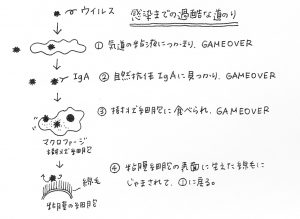 ウイルス
感染までの過酷な道のり
① 気道の粘液につかまり、GAMEOVER
IgA
② 自然抗体 IgAに見つかり、GAMEOVER
③ 接触細胞に食べられ、GAMEOVER
マクロファージ
接触細胞
④ 粘膜細胞の表面に生えた線毛に
じゃまされて、①に戻る。
線毛
粘膜の細胞